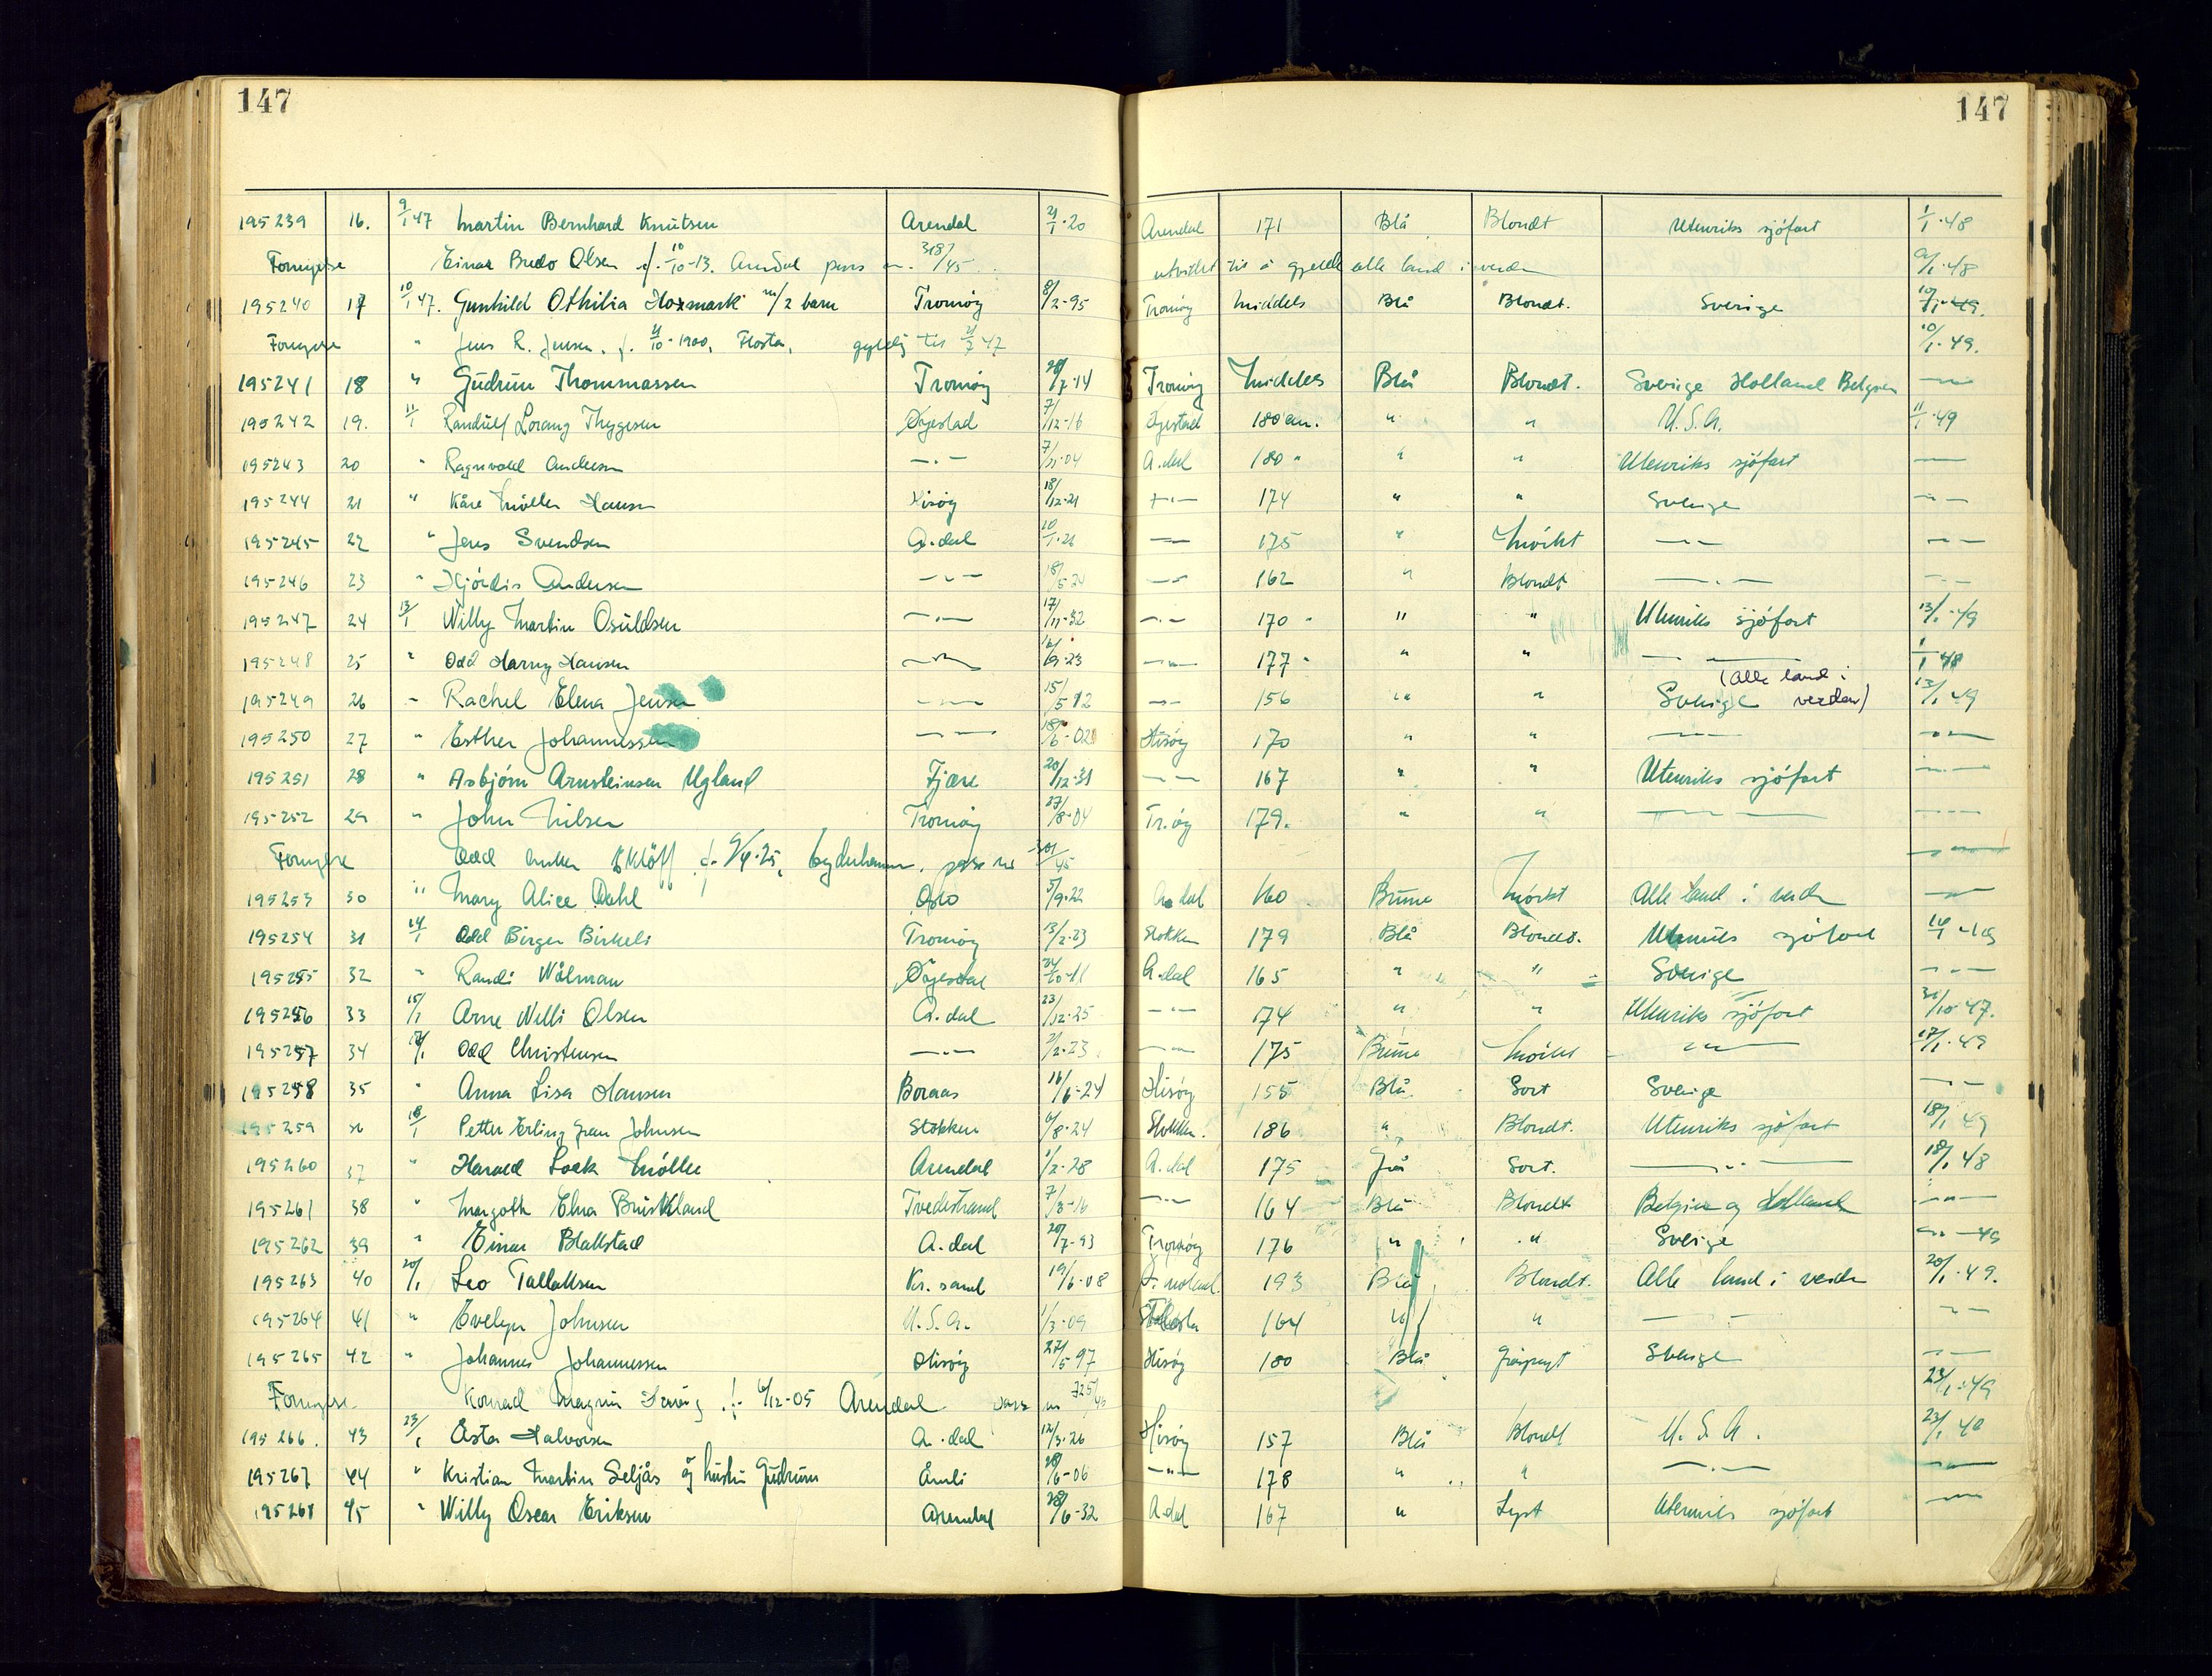 147 147
195239 16. 9/1 47 Martin Bernhard Knutsen Arendal 21/1-20 Arendal 171 Blå Blondt Utenriks sjöfart 1/1-48
Fornyelse Einar Bredo Olsen f. 10/10-13. Arendal pass nr. 318/45 utvidet til å gjelde alle land i verden 9/1-48
195240 17 10/1 47. Gunhild Othilia m/2 barn Tromöy 8/2-95 Tromöy Middels Blå Blondt. Sverige 10/1-49.
Fornyelse " Jens R. Jensen. f. 10-1900, Flosta, gyldig til 47 10/1-49.
195241 18 " Gudrun Thommassen Tromöy 28/7-14 Tromöy Middels Blå Blondt. Sverige Holland Belgien —"—
195242 19. 11/1 Randulf Lorang Thygesen Öyestad 7/12-16 Öyestad 180 cm. " " U.S.A. 11/1-49
195243 20 " Ragnvald Andersen —"— 7/11-04 A.dal 180 " " " Utenriks sjöfart —
195244 21 " Kåre Möller Hansen Hisöy 18/12-21 —"— 174 " " Sverige —"—
195245 22 " Jens Svendsen A.dal 10/1-21 —"— 175 " Mörkt —"— —"—
195246 23 " Hjördis Andersen —"— 18/5-24 —"— 162 " Blondt —"— —"—
195247 24 13/1 Willy Martin Osuldsen —"— 17/11-32 —"— 170 " " " Utenriks sjöfart 13/1-49
195248 25 " Odd Harry Hansen —"— 9-23 —"— 177 " " " —"— 1/1 48
195249 26 " Rachel Elena Jensen —"— 15/5 12 —"— 156 " " Sverige (Alle land i verden) 13/1 49
195250 27 " Esther Johannessen —"— 18/6-02 Hisöy 170 " " —"— —"—
195251 28 " Asbjörn Arnsteinsen Ugland Fjære 20/12-31 —"— 167 " " Utenriks sjöfart —"—
195252 29 " John Nilsen Tromöy 27/8-04 Tr.öy 179. " " —"— —"—
Fornyelse Odd Eklöff f. 9/4-25, pass nr 45 —"—
195253 30 " Mary Alice Dahl Oslo 5/9-22 A.dal 160 Brune Mörkt Alle land i verden —"—
195254 31 14/1 Odd Birger Birkeli Tromöy 13/2-23 Stokken 179 Blå Blondt. Utenriks sjöfart 14/1-49
195255 32 " Randi Wålman Öyestad 24/10-11 A.dal 165 " " Sverige —"—
195256 33 15/1 Arne Willi Olsen A.dal 23/12-25 —"— 174 " " Utenriks sjöfart 31/10-47.
195257 34 17/1 Odd Christensen —"— 2/2-23 —"— 175 Brune Mörkt —"— 17/1-49
195258 35 " Anna Lisa Hansen Boraas 16/6-24 Hisöy 155 Blå Sort Sverige —"—
195259 36 18/1 Petter Erling Gran Johnsen Stokken 6/8-24 Stokken. 186 " Blondt. Utenriks sjöfart 18/1 49
195260 37 " Harald Lock Möller Arendal 1/2-28 A.dal 175 Grå Sort. —"— 18/1 48
195261 38 " Margoth Elna Bruskland Tvedestrand 7/3-16 —"— 164 Blå Blondt Belgien og Holland —"—
195262 39 " Einar Blakstad A.dal 20/7-93 Tromöy 176 " " Sverige —"—49
195263 40 20/1 Leo Tallaksen Kr.sand 19/6-08 193 Blå Blondt. Alle land i verden 20/1-49.
195264 41 " Evelyn Johnsen U.S.A. 1/3-09 Flosta 164 " " — — —"—
195265 42 " Johannes Johannessen Hisöy 27/5-97 Hisöy 180 Blå Gråsprengt Sverige —"—
Fornyelse Konrad Magnus f. 6/12-05 Arendal pass nr 725/45 23/1-49
195266. 43 23/1 Åsta Halvorsen A.dal 12/3-26 Hisöy 157 Blå Blondt U.S.A. 23/1 49
195267 44 " Kristian Martin Seljås og hustru Gudrun Åmli 28/6-06 —"— 178 " " —"— —"—
195268 45 " Willy Oscar Eriksen Arendal 28/6-32 A.dal 167 " Lyst Utenriks sjöfart —"—